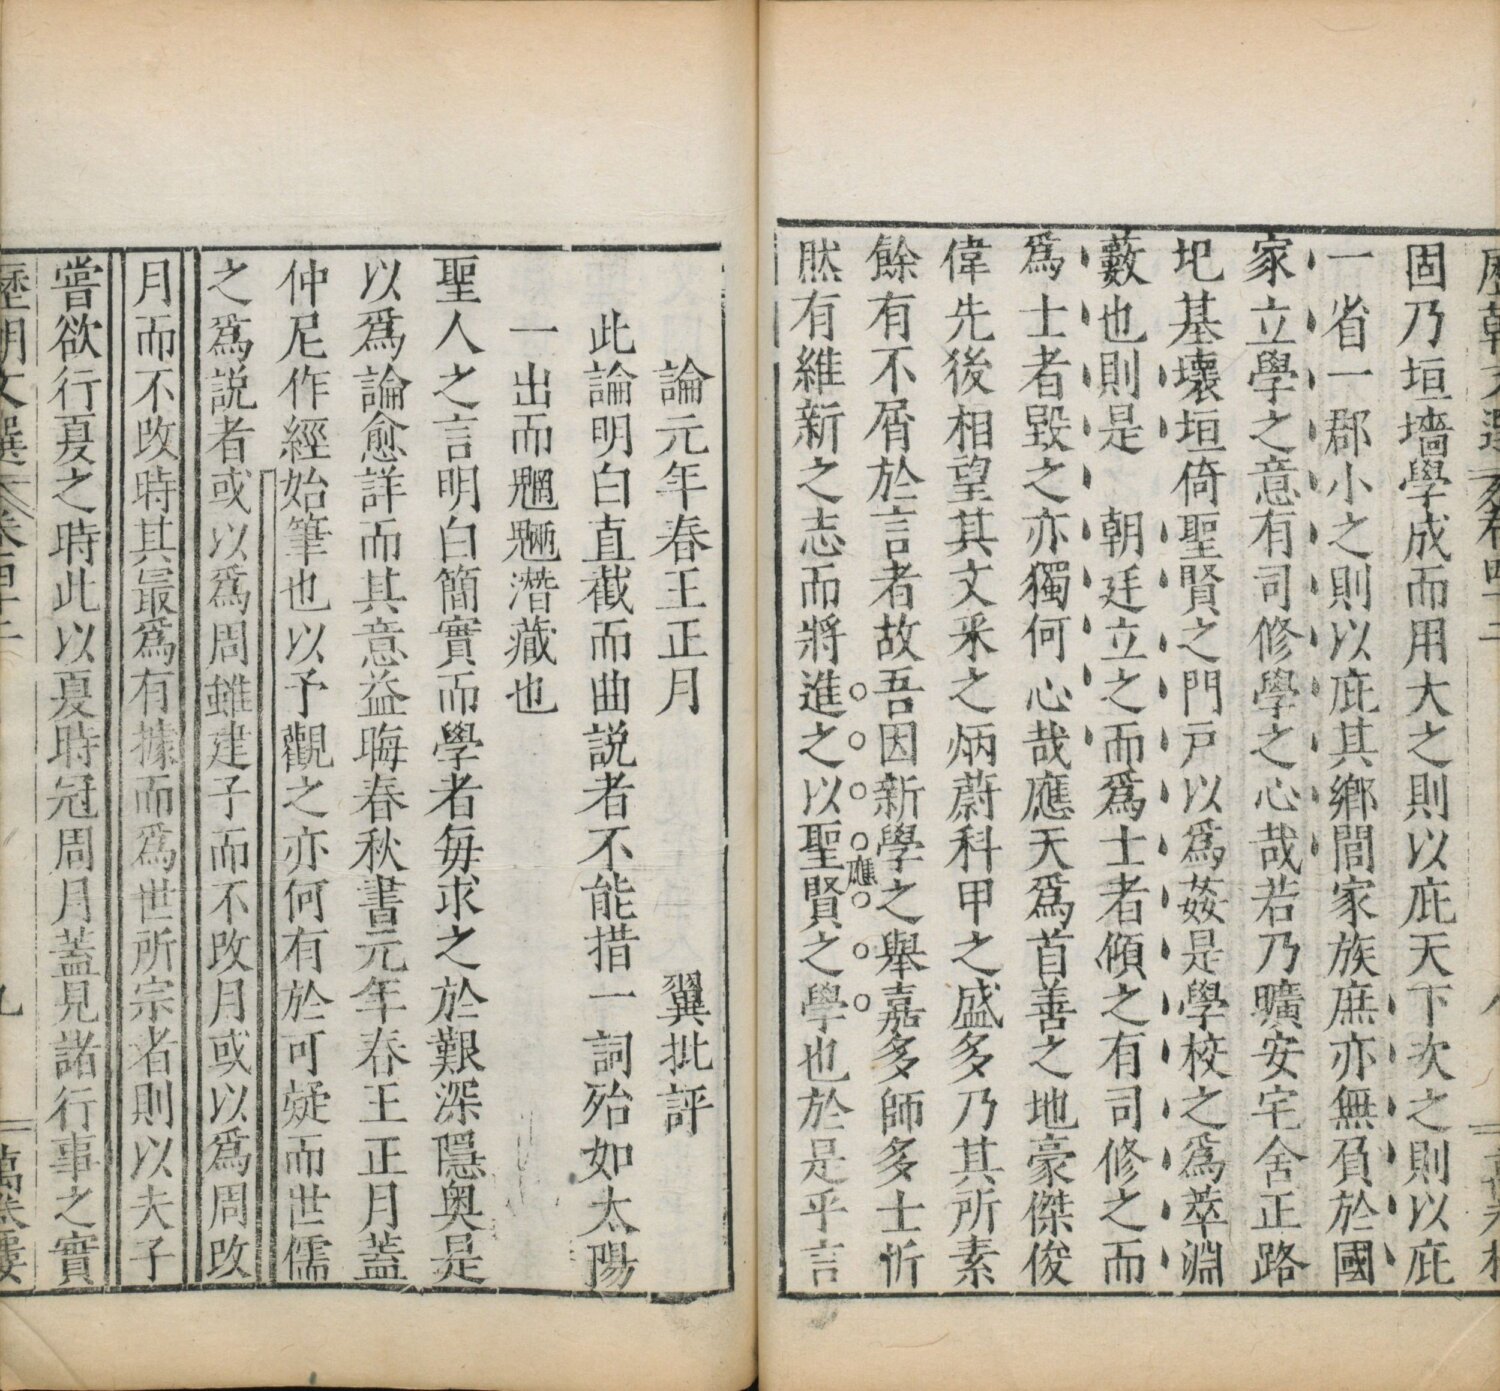 固乃垣墻學成而用大之則以庇天下次之則以庇
一省一郡小之則以庇其鄉閭家族庶亦無負於國
家立學之意有司修學之心哉若乃曠安宅舍正路
圯基壞垣倚聖賢之門戶以爲姦是學校之爲萃淵
藪也則是　朝廷立之而爲士者傾之有司修之而
爲士者毀之亦獨何心哉應天爲首善之地豪傑俊
偉先後相望其文采之炳蔚科甲之盛多乃其所素
餘有不屑於言者故吾因新學之舉嘉多師多士忻
應
然有維新之志而將進之以聖賢之學也於是乎言
論元年春王正月　翼批評
此論明白直截而曲説者不能措一詞殆如太陽
一出而魍魎潛藏也
聖人之言明白簡實而學者每求之於艱深隱奥是
以爲論愈詳而其意益晦春秋書元年春王正月蓋
仲尼作經始筆也以予觀之亦何有於可疑而世儒
之爲説者或以爲周雖建子而不改月或以爲周改
月而不改時其最爲有據而爲世所宗者則以夫子
嘗欲行夏之時此以夏時冠周月蓋見諸行事之實
歷朝文選　卷四十二　九　萬卷樓